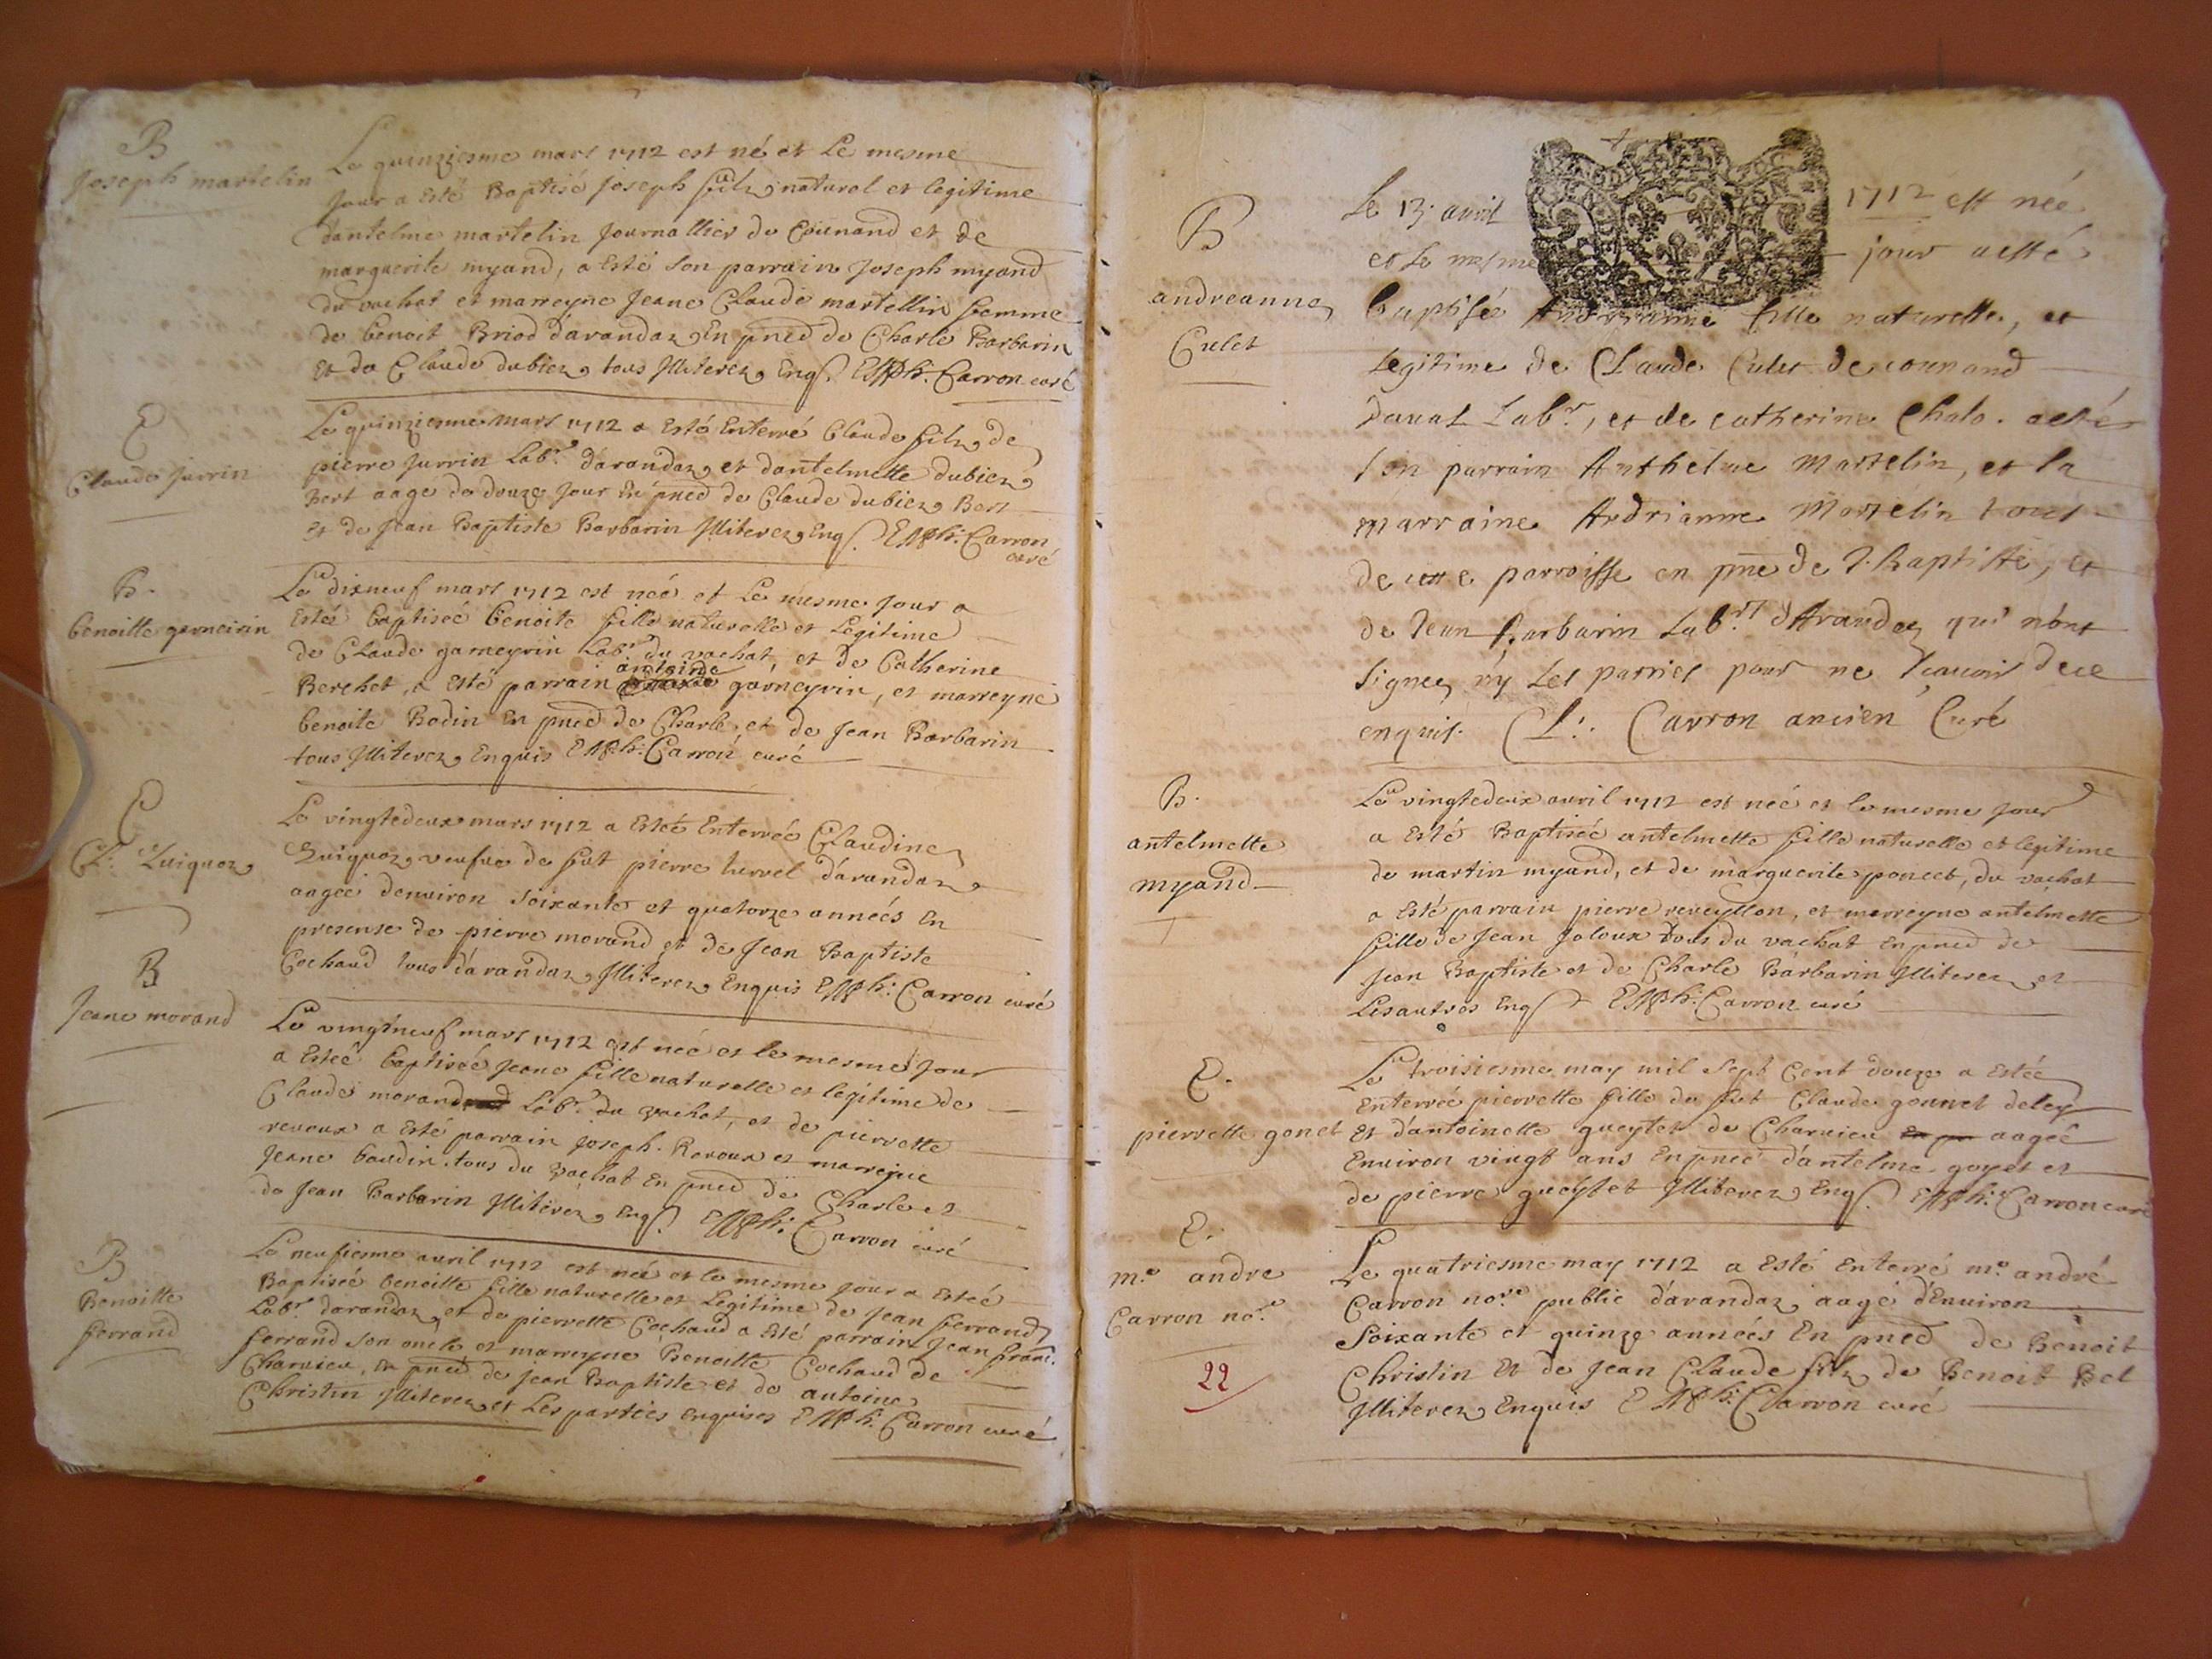 B
Joseph martelin
Le quinziesme mars 1712 est né et Le mesme
Jour a Esté Baptisé Joseph filz naturel et legitime
dantelme martelin Journallier de Counand et de
marguerite myand, a Esté son parrain Joseph myand
du vachat et marreyne Jeane Claude martellin femme
de benoit Briod d'arandaz En pnce de Charle Barbarin
Et de Claude dubiez tous Jlliterez Enq. Carron curé
E
Claude Jurrin
Le quinziesme Mars 1712 a Esté Enterré Claude filz de
pierre Jurrin Labr. d'arandaz et dantelmette dubiez
Bert aagé de douze Jour En pnce de Claude dubiez Bert
Et de Jean Baptiste Barbarin Jlliterez Enq. Carron
curé
B.
benoitte garneirin
Le dixneuf mars 1712 est née et Le mesme Jour a
Estée baptiseé benoite fille naturelle et Legitime
de Claude garneyrin Labr. du vachat, et de Catherine
Berchet, a Esté parrain antoine garneyrin, et marreyne
benoite Bodin En pnce de Charle, et de Jean Barbarin
tous Jlliterez Enquis Carron curé
E
Cl. Quiquoz
Le vingtedeux mars 1712 a Esteé Enterreé Claudine
Quiquoz veufue de fut pierre hervel d'arandaz
aageé denuiron soixante et quatorze anneés En
presense de pierre morand et de Jean Baptiste
Cochaud tous d'arandaz Jlliterez Enquis Carron curé
B
Jeane morand
Le vingtneuf mars 1712 est neé et le mesme Jour
a Esteé baptiseé Jeane fille naturelle et legitime de
Claude morand Labr. du vachat, et de pierrette
reuoux a Esté parrain joseph Reuoux et marreyne
Jeane baudin tous du vachat En pnce de Charle et
de Jean Barbarin Jlliterez Enq. Carron curé
B
Benoitte
ferrand
Le neufiesme auril 1712 est neé et le mesme Jour a Esteé
Baptiseé benoitte fille naturelle et Legitime de Jean ferrand
Labr d'arandaz, et de pierrette Cochaud a Esté parrain Jean franc.
ferrand son oncle et marreyne Benoitte Cochaud de
Charuieu, En pnce de Jean Baptiste et de antoine
Christin Jlliterez et Les parties Enquises Carron curé
B
andreanne
Culet
Le 13. auril 1712 est née
et le mesme jour a esté
baptisée fille naturelle, et
Legitime de Claude Culet de counand
Labr., et de catherine Chalo. a esté
son parrain Anthelme Martelin, et la
marraine Andrianne Martelin tous
de cette parroisse en pnce de J. Baptiste, et
de Jean Barbarin Labrs d'Arandaz qui n'ont
signez n'y Les parties pour ne scauoir de ce
enquis. Cl. Carron ancien Curé
B.
antelmette
myand
Le vingtedeux auril 1712 est neé et le mesme Jour
a Esté Baptiseé antelmette fille naturelle et legitime
de martin myand, et de marguerite poncet, du vachat
a Esté parrain pierre reueyllon, et marreyne antelmette
fille de Jean Joloux tous du vachat En pnce de
Jean Baptiste et de Charle Barbarin Jlliterez et
Les autres Enq. Carron curé
E.
pierrette gonet
Le troisiesme may mil sept Cent douze a Estée
Enterreé pierrette fille du fut Claude gounet deley
Et d'antoinette gueytet de Charuieu aageé
Enuiron vingt ans En pnce d'antelme goyet et
de pierre gueytet Jlliterez Enq. Carron curé
E.
me. andre
Carron nore.
22
Le quatriesme may 1712 a Esté Enterré me. andré
Carron nore. public d'arandaz aagé d'Enuiron
Soixante et quinze années En pnce de Benoit
Christin Et de Jean Claude filz de Benoit Bel
Jlliterez Enquis Carron curé